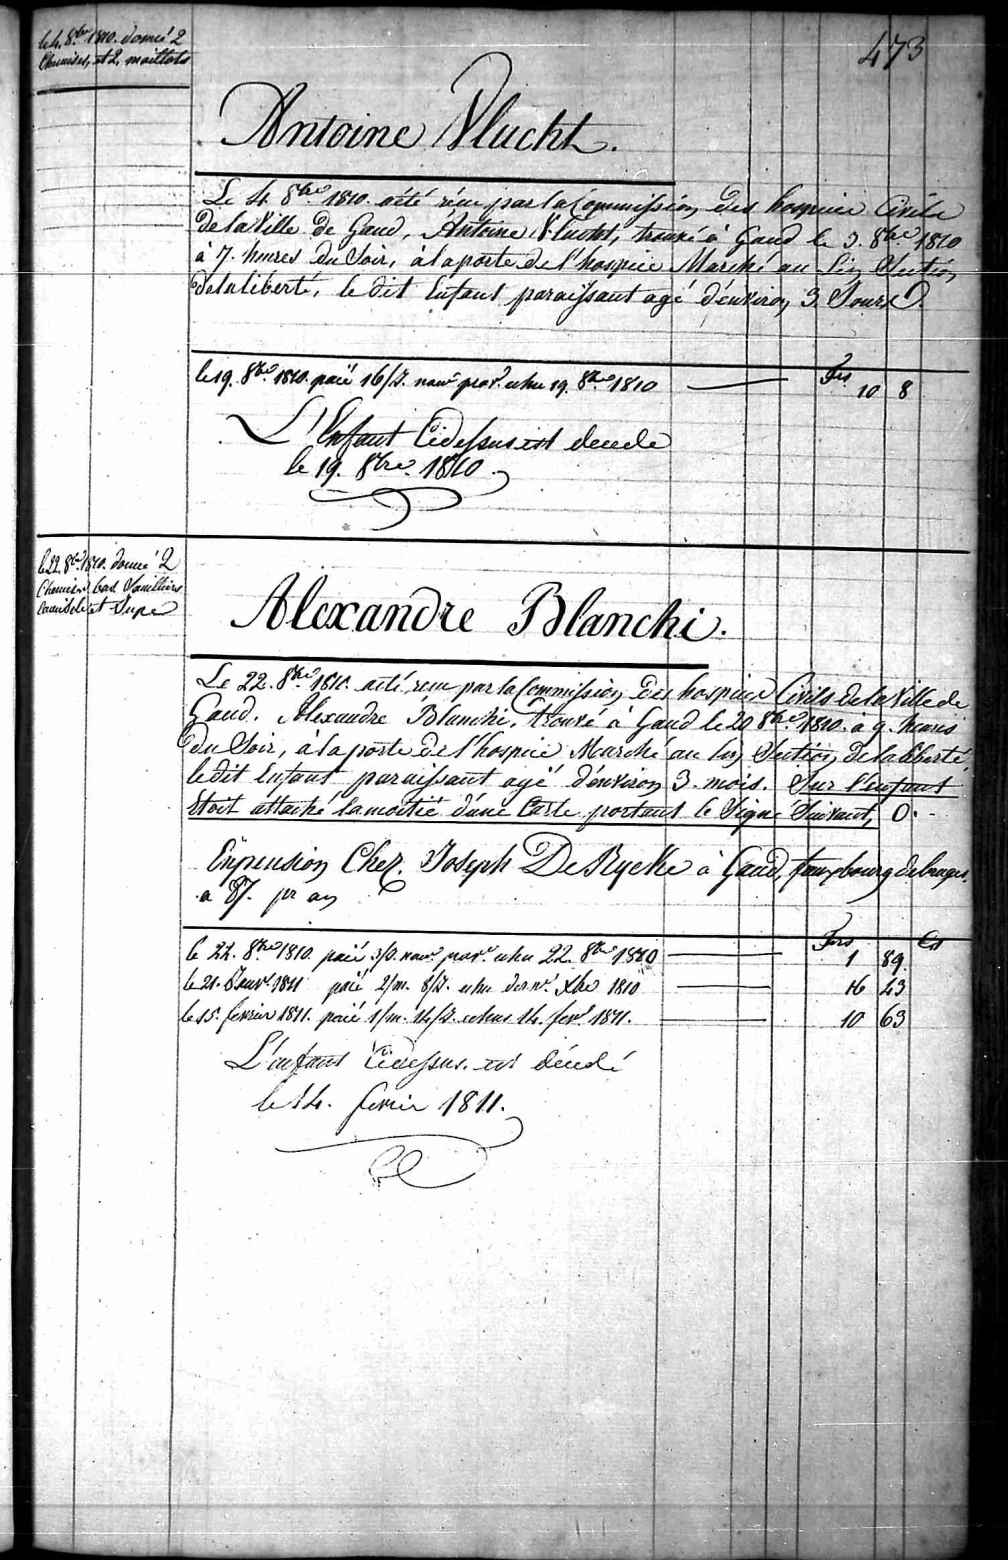 473
le 4. 8bre 1810. donné 2
Chemises, et 2 maillots
Antoine Vlucht.
Le 4. 8bre 1810. a été recu par la Commission des hospice Civils
de la Ville de Gand, Antoine Vlucht, trouvé à Gand le 3. 8bre 1810
à 7. heures du Soir, à la porte de l'hospice Marché au lin Section
de la liberté, le dit Enfant paraissant agé d'environ 3 Jours.
Frs
le 19. 8bre 1810. paié 16/J. nour prov. echu 19. 8bre 1810 10 8
L'Enfant Cidessus est decede
le 19. 8bre. 1810.
le 22. 8bre 1810. donné 2
Chemises bas Souilliers
camisole et Jupe
Alexandre Blanchi.
Le 22. 8bre 1810. a été recu par la Commission des hospice Civils de la Ville de
Gand. Alexandre Blanchi, trouvé à Gand le 20 8bre 1810. à 9. heures
du Soir, à la porte de l'hospice Marché au lin, Section de la liberté
le dit Enfant paraissant agé d'environ 3. mois. Sur l'enfant
Etoit attaché la moitié d'une Carte portant le Signe Suivant, O.
Enpension Chez. Joseph De Rycke à Gand, fauxbourg de bruges.
a 87. pr an
Frs Cs
le 22. 8bre 1810. paié 3/J. nour prov. echu 22. 8bre 1810 1 89.
le 21. Janv. 1811 paié 2/m. 8/J. echu der nr. Xbre 1810 16 43
le 15. fevrier 1811. paié 1/m. 14/J. echus 14. fevr. 1811. 10 63
L'enfant Cidessus. est décédé
le 14. fevrier 1811.